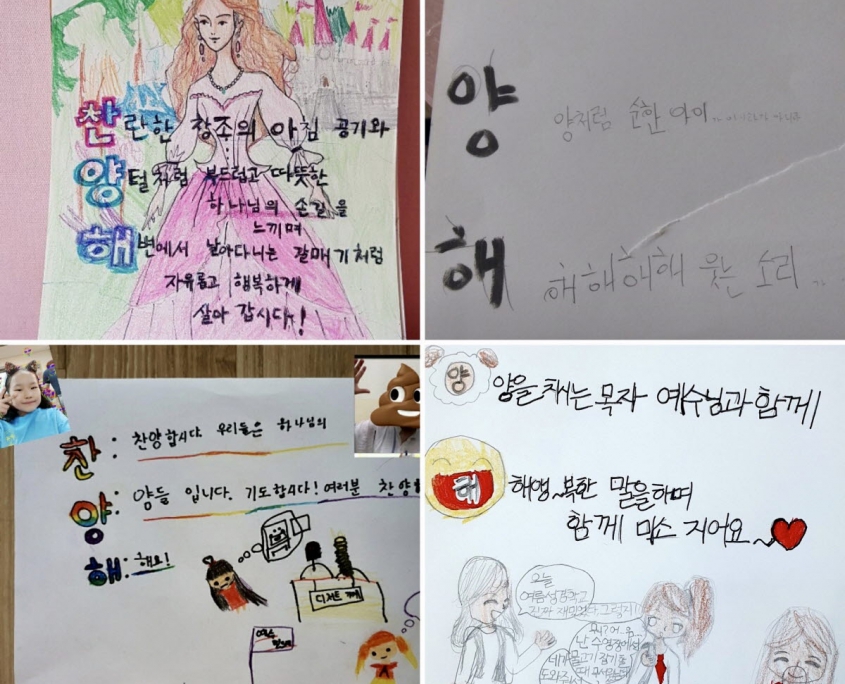 찬란한 창조의 아침 공기와
양털처럼 부드럽고 따뜻한
하나님의 손길을
느끼며
해변에서 날아다니는 갈매기처럼
자유롭고 행복하게
살아 갑시다!
양
양처럼 순한 아이
해
해해해해 웃는 소리
찬: 찬양합시다. 우리들은 하나님의
양: 양들 입니다. 기도합시다! 여러분 찬양
해: 해요!
디저트 가게
예수
양
양을 치시는 목자 예수님과 함께
해
해행~복한 말을하며
함께 미소 지어요~
오늘
여름성경학교
진짜 재밌었다 그렇지?
난 수영장에서